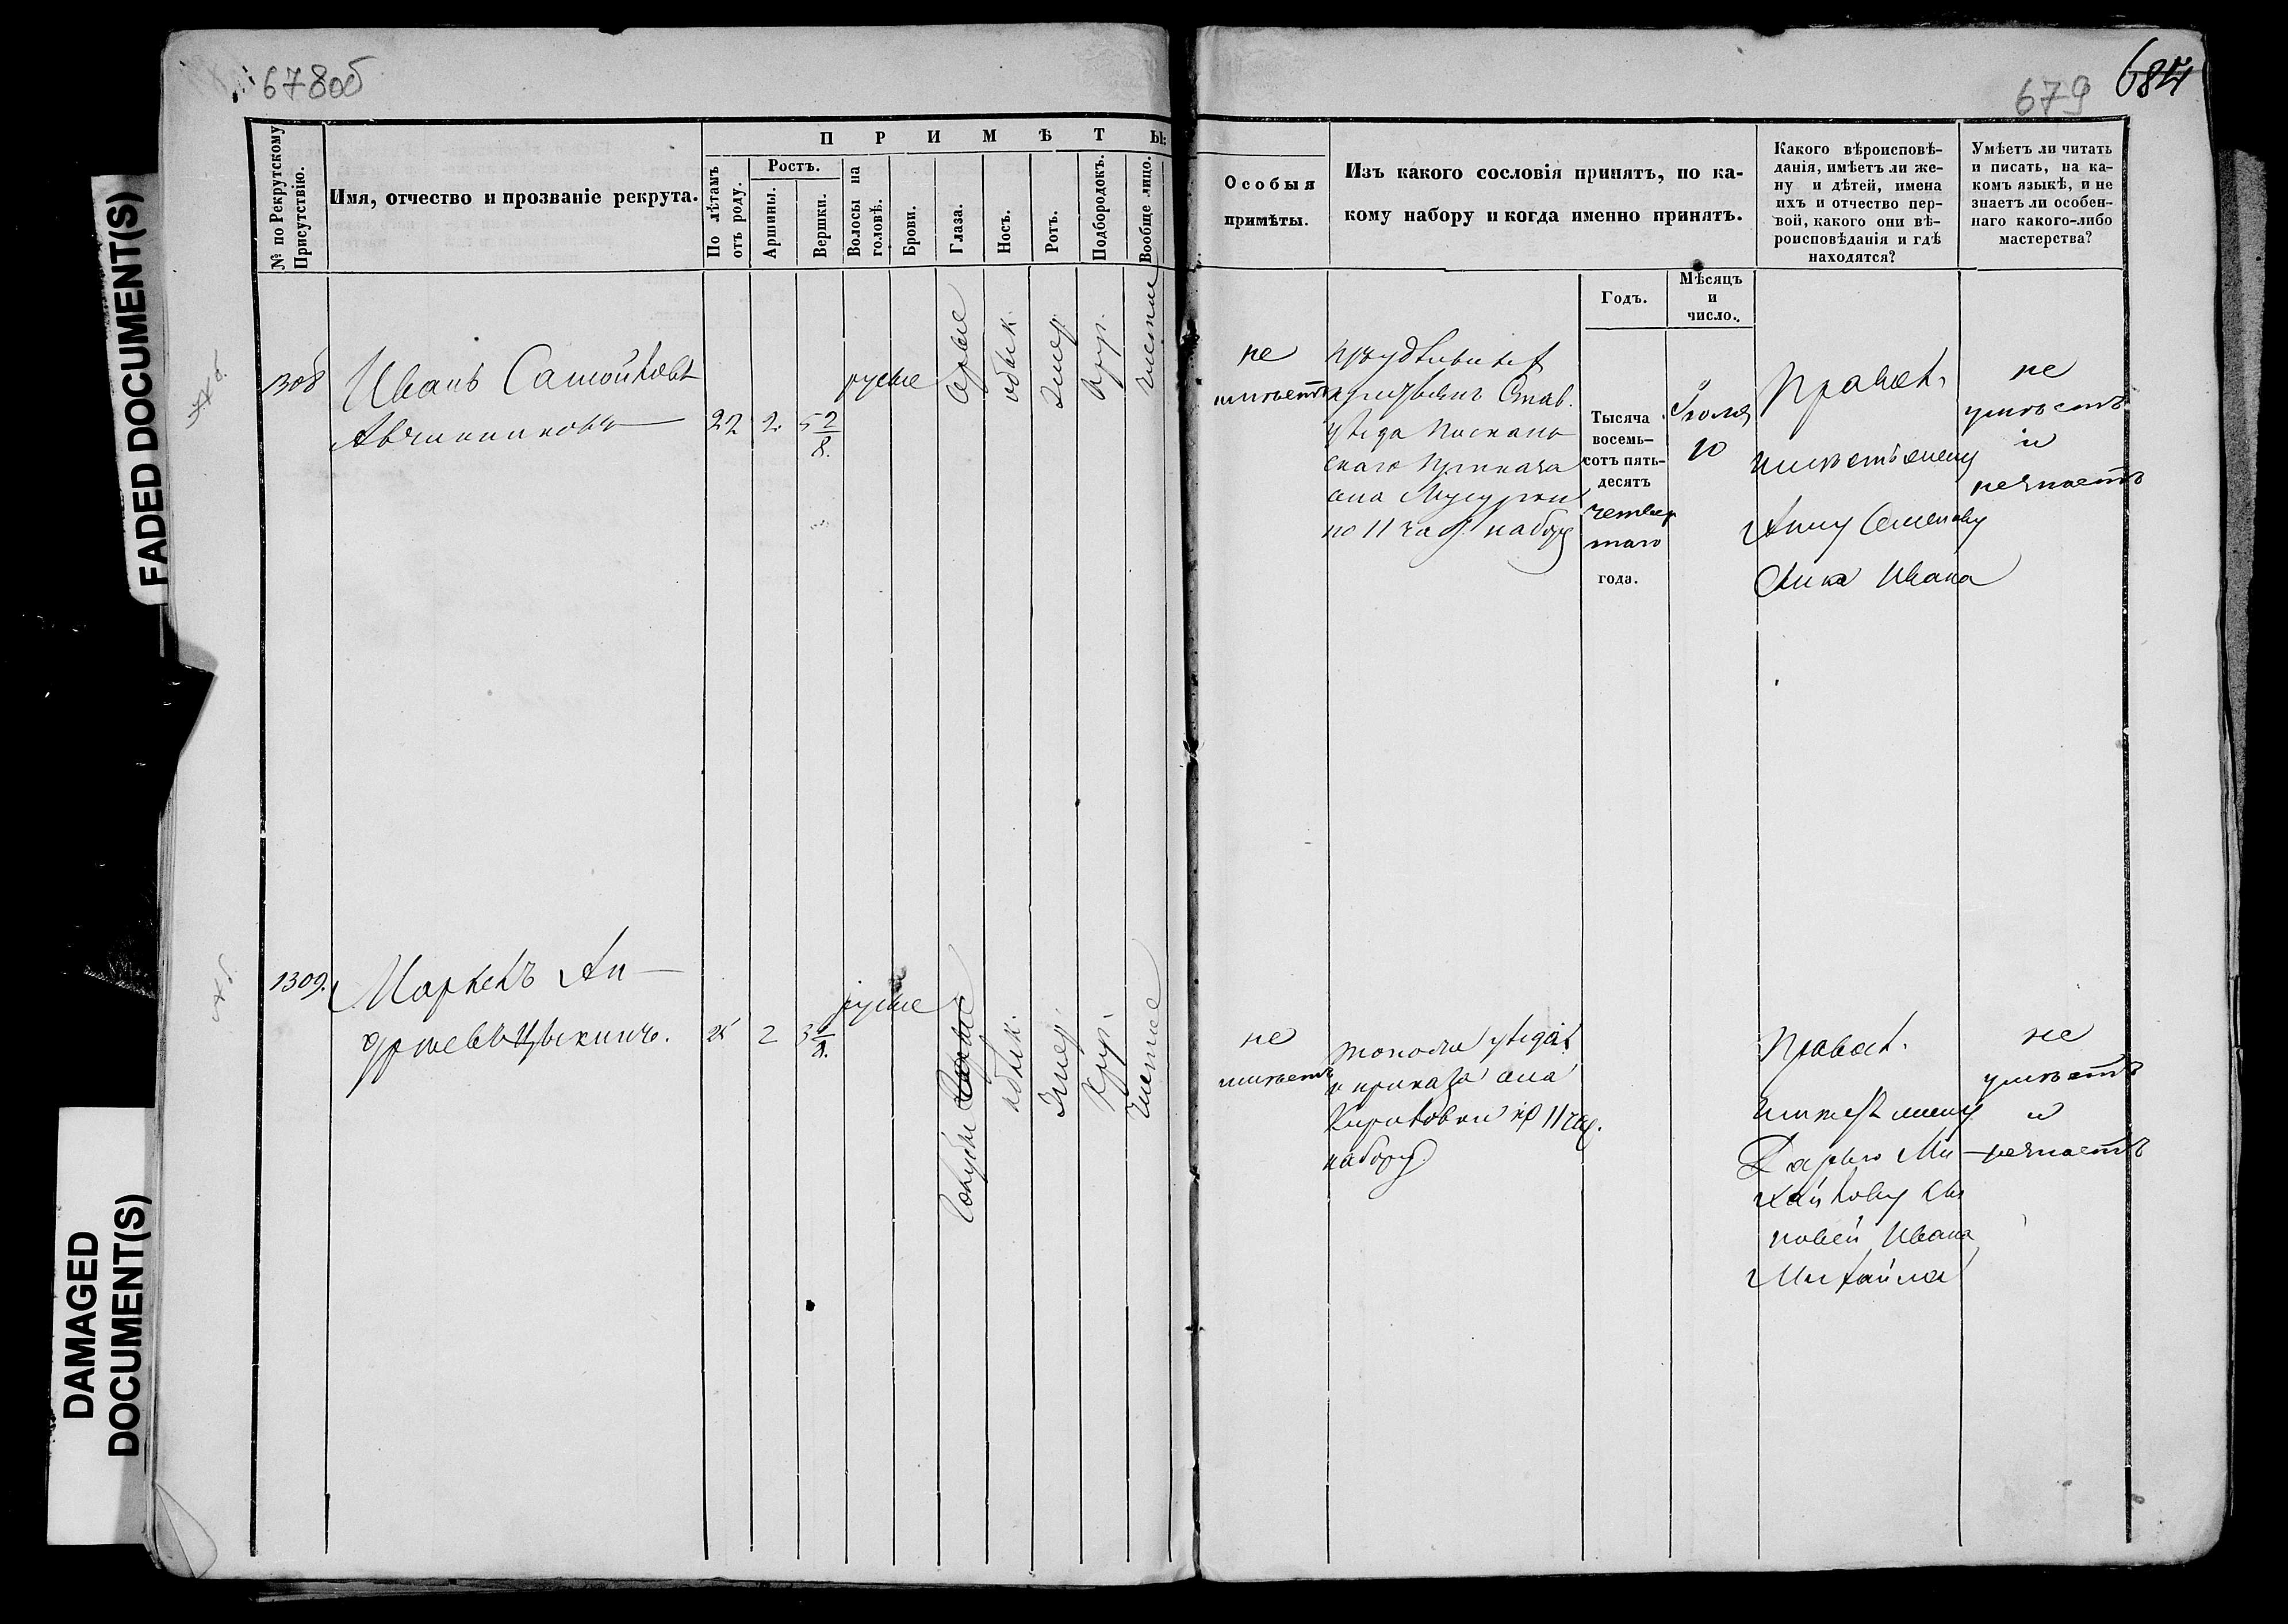 678об
679 684
FADED DOCUMENT(S)
DAMAGED
DOCUMENT(S)
№ по Рекрутскому
Присутствію.
Имя, отчество и прозваніе рекрута.
ПРИМѢТЫ:
По лѣтамъ
отъ роду.
Ростъ.
Аршины.
Вершки.
Волосы на
головѣ.
Брови.
Глаза.
Носъ.
Ротъ.
Подбородокъ.
Вообще лицо.
Особыя
примѣты.
Изъ какого сословія принятъ, по ка-
кому набору и когда именно принятъ.
Годъ.
Мѣсяцъ
и
число.
Какого вѣроисповѣ-
данія, имѣетъ ли же-
ну и дѣтей, имена
ихъ и отчество пер-
вой, какого они вѣ-
роисповѣданія и гдѣ
находятся?
Умѣетъ ли читать
и писать, на ка-
комъ языкѣ, и не
знаетъ ли особен-
наго какого-либо
мастерства?
1308
Иванъ Самойловъ
Авчинниковъ
22 2 5 2/8.
русые
сѣрые
обык.
умер.
круг.
чистое
не
имѣетъ
Став.
уѣзда
скаго приказа
села
по 11 час. набору
Тысяча
восемь-
сотъ пять-
десятъ
четвер
таго
года.
Іюля
10
Правос.
имѣетъ жену
Анну Семенову
сына Ивана
не
умѣетъ
и
незнаетъ
1309.
Маркелъ Ан-
дреевъ Цыкинъ.
25 2 3
русые
голубые
обык.
умер.
круг.
чистое
не
имѣетъ
того же уѣзда
и приказа села
Кириловки по 11 час.
набору
Правос.
имѣетъ жену
Дарью Ми-
хайлову сы
новей Ивана
Михайла
не
умѣетъ
и
незнаетъ